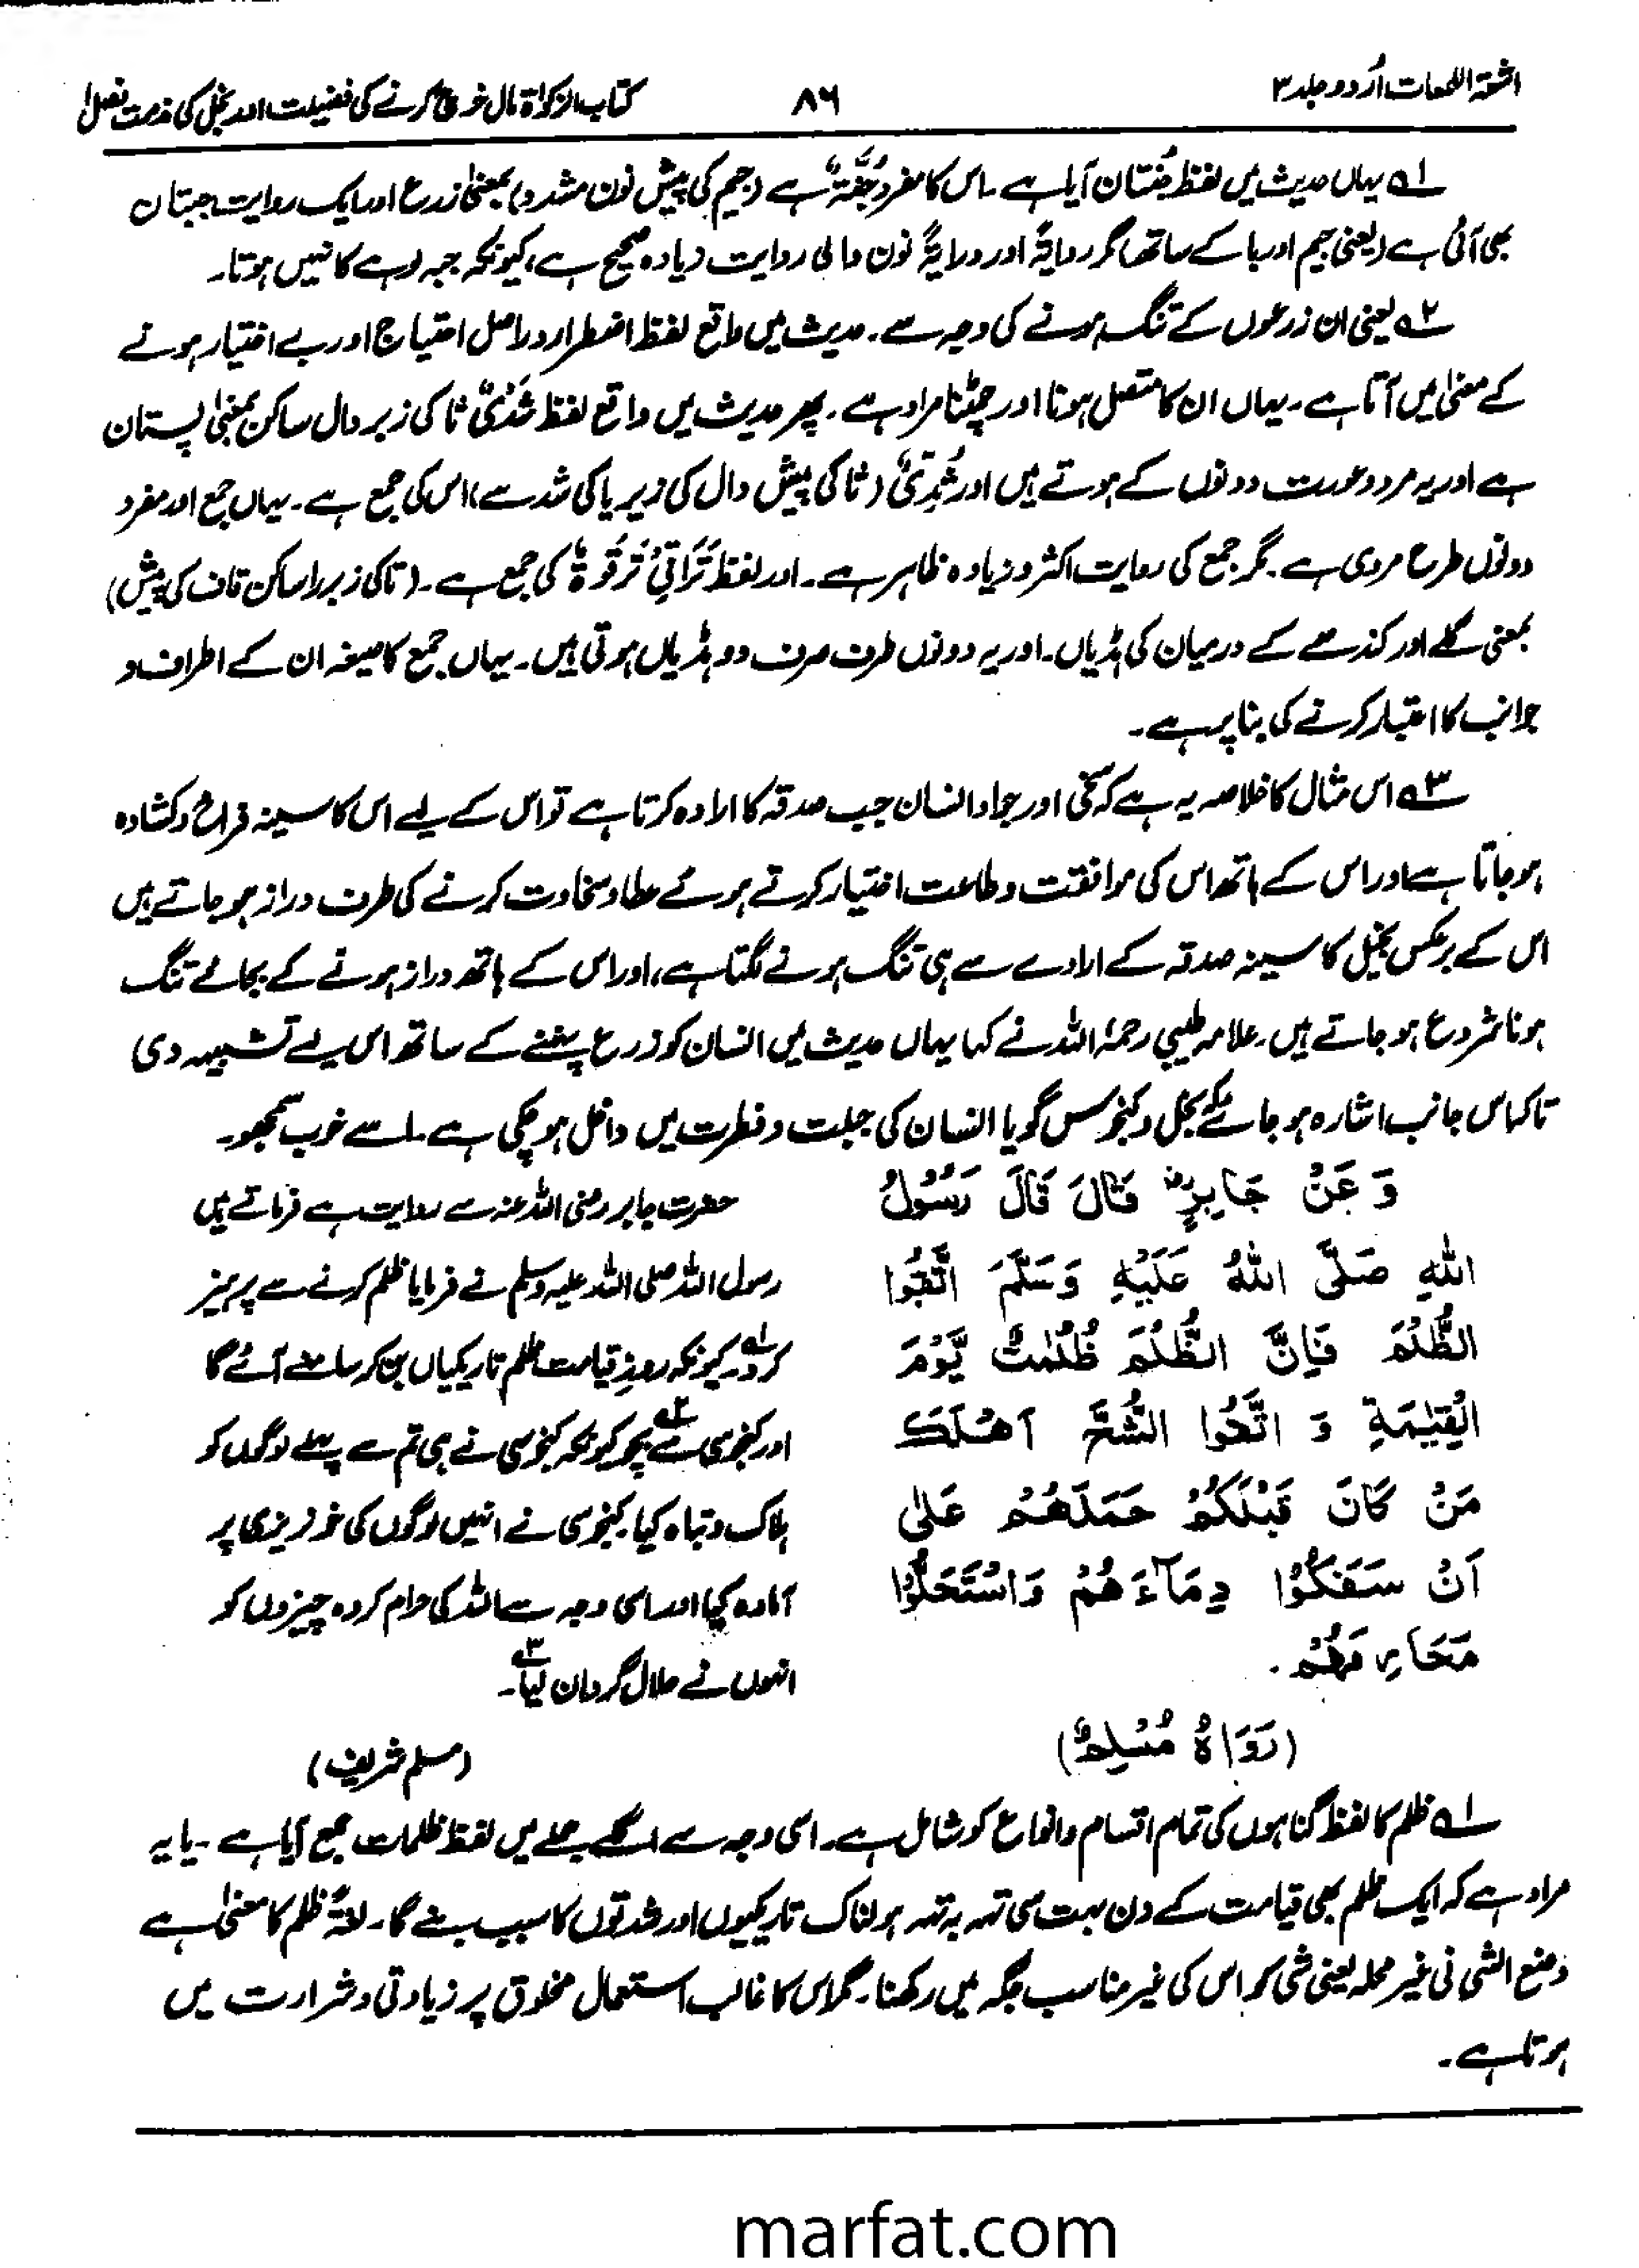 اشعۃ اللمعات اُردو جلد ۳
۸۶
کتاب الزکواۃ مال خرچ کرنے کی فضیلت اور بخل کی مذمت فصل۱
۱؎ یہاں حدیث میں لفظ جُنَّتان آیا ہے ۔ اس کا مفرد جُنَّۃٌ ہے (جیم کی پیش نون مشدد) بمعنیٰ زرع اور ایک روایت جبتان
بھی آئی ہے (یعنی جیم اور با کے ساتھ) مگر روایۃً اور درایۃً نون والی روایت زیادہ صحیح ہے، کیونکہ جبہ لوہے کا نہیں ہوتا۔
۲؎ یعنی ان زرعوں کے تنگ ہونے کی وجہ سے ۔ حدیث میں واقع لفظ اضطرار دراصل احتیاج اور بے اختیار ہونے
کے معنیٰ میں آتا ہے ۔ یہاں ان کا متصل ہونا اور چمٹنا مراد ہے ۔ پھر حدیث میں واقع لفظ ثَدْیٌ ثا کی زبر دال ساکن بمعنیٰ پستان
ہے اور یہ مرد و عورت دونوں کے ہوتے ہیں اور ثُدِیٌّ (ثا کی پیش دال کی زیر یا کی شد سے) اس کی جمع ہے ۔ یہاں جمع اور مفرد
دونوں طرح مروی ہے ۔ مگر جمع کی روایت اکثر و زیادہ ظاہر ہے ۔ اور لفظ تَرَاقِیْ تَرْقُوَۃٌ کی جمع ہے ۔ (تا کی زبر را ساکن قاف کی پیش)
بمعنی گلے اور کندھے کے درمیان کی ہڈیاں ۔ اور یہ دونوں طرف صرف دو ہڈیاں ہوتی ہیں ۔ یہاں جمع کا صیغہ ان کے اطراف و
جوانب کا اعتبار کرنے کی بنا پر ہے ۔
۳؎ اس مثال کا خلاصہ یہ ہے کہ سخی اور جواد انسان جب صدقہ کا ارادہ کرتا ہے تو اس کے لیے اس کا سینہ فراخ و کشادہ
ہو جاتا ہے اور اس کے ہاتھ اس کی موافقت و طاعت اختیار کرتے ہوئے عطا و سخاوت کرنے کی طرف دراز ہو جاتے ہیں
اس کے برعکس بخیل کا سینہ صدقہ کے ارادے سے ہی تنگ ہونے لگتا ہے، اور اس کے ہاتھ دراز ہونے کے بجائے تنگ
ہونا شروع ہو جاتے ہیں ۔ علامہ طیبی رحمۃ اللہ نے کہا یہاں حدیث میں انسان کو زرع پہننے کے ساتھ اس لیے تشبیہہ دی
تاکہ اس جانب اشارہ ہو جائے کہ بخل و کنجوسی گویا انسان کی جبلت و فطرت میں داخل ہو چکی ہے ۔ اسے خوب سمجھو ۔
وَ عَنْ جَابِرٍؓ قَالَ قَالَ رَسُوْلُ
اللهِ صَلَّى اللهُ عَلَيْهِ وَسَلَّمَ اتَّقُوا
الظُّلْمَ فَاِنَّ الظُّلْمَ ظُلُمٰتٌ يَّوْمَ
الْقِيٰمَةِ وَ اتَّقُوا الشُّحَّ اَهْلَكَ
مَنْ كَانَ قَبْلَكُمْ حَمَلَهُمْ عَلٰى
اَنْ سَفَكُوْا دِمَآءَهُمْ وَاسْتَحَلُّوْا
مَحَارِمَهُمْ .
(رَوَاهُ مُسْلِمٌ)
حضرت جابر رضی اللہ عنہ سے روایت ہے فرماتے ہیں
رسول اللہ صلی اللہ علیہ وسلم نے فرمایا ظلم کرنے سے پرہیز
کرو۱؎ ۔ کیونکہ روز قیامت ظلم تاریکیاں بن کر سامنے آئے گا
اور کنجوسی سے۲؎ بچو کیونکہ کنجوسی نے ہی تم سے پہلے لوگوں کو
ہلاک و تباہ کیا ۔ کنجوسی نے انہیں لوگوں کی خونریزی پر
آمادہ کیا اور اسی وجہ سے اللہ کی حرام کردہ چیزوں کو
انہوں نے حلال گردان لیا۳؎ ۔
(مسلم شریف)
۱؎ ظلم کا لفظ گناہوں کی تمام اقسام و انواع کو شامل ہے ۔ اسی وجہ سے اگلے جملے میں لفظ ظلمات جمع آیا ہے ۔ یا یہ
مراد ہے کہ ایک ظلم بھی قیامت کے دن بہت سی تہہ بہ تہہ ہولناک تاریکیوں اور شدتوں کا سبب بنے گا ۔ لغۃً ظلم کا معنیٰ ہے
وضع الشئ فی غیر محلہ یعنی شئ کو اس کی غیر مناسب جگہ میں رکھنا ۔ مگر اس کا غالب استعمال مخلوق پر زیادتی و شرارت میں
ہوتا ہے ۔
marfat.com